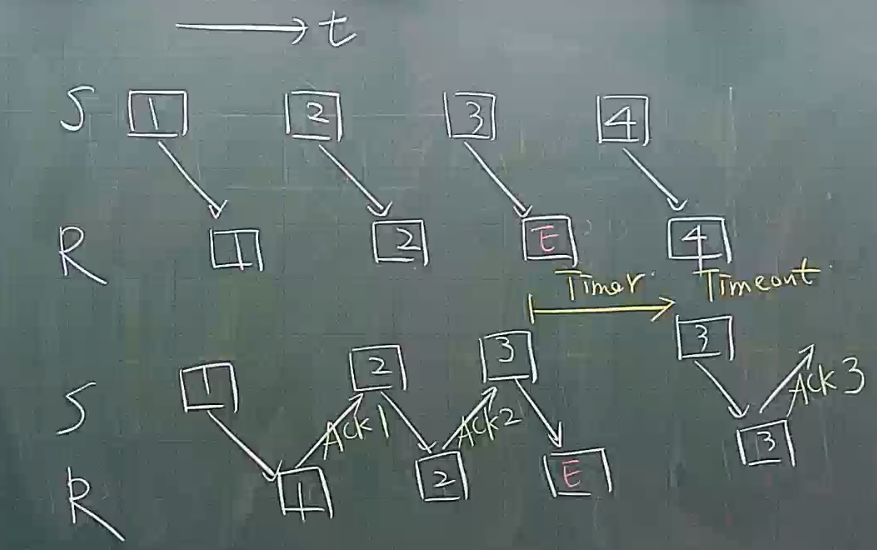 t
S 1 2 3 4
R 1 2 E 4
Timer Timeout
S 1 2 3 3
Ack1 Ack2 Ack3
R 1 2 E 3